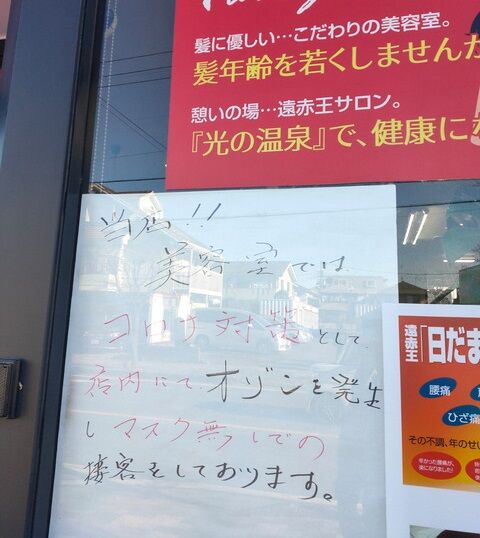 髪に優しい…こだわりの美容室。
髪年齢を若くしませんか
憩いの場…遠赤王サロン。
『光の温泉』で、健康に
当店!!
美容室では
コロナ対策として
店内にて、オゾンを発生
しマスク無しでの
接客をしております。
遠赤王「日だま
腰痛
ひざ痛
その不調、年のせい
辛かった腰痛が、
楽になりました!